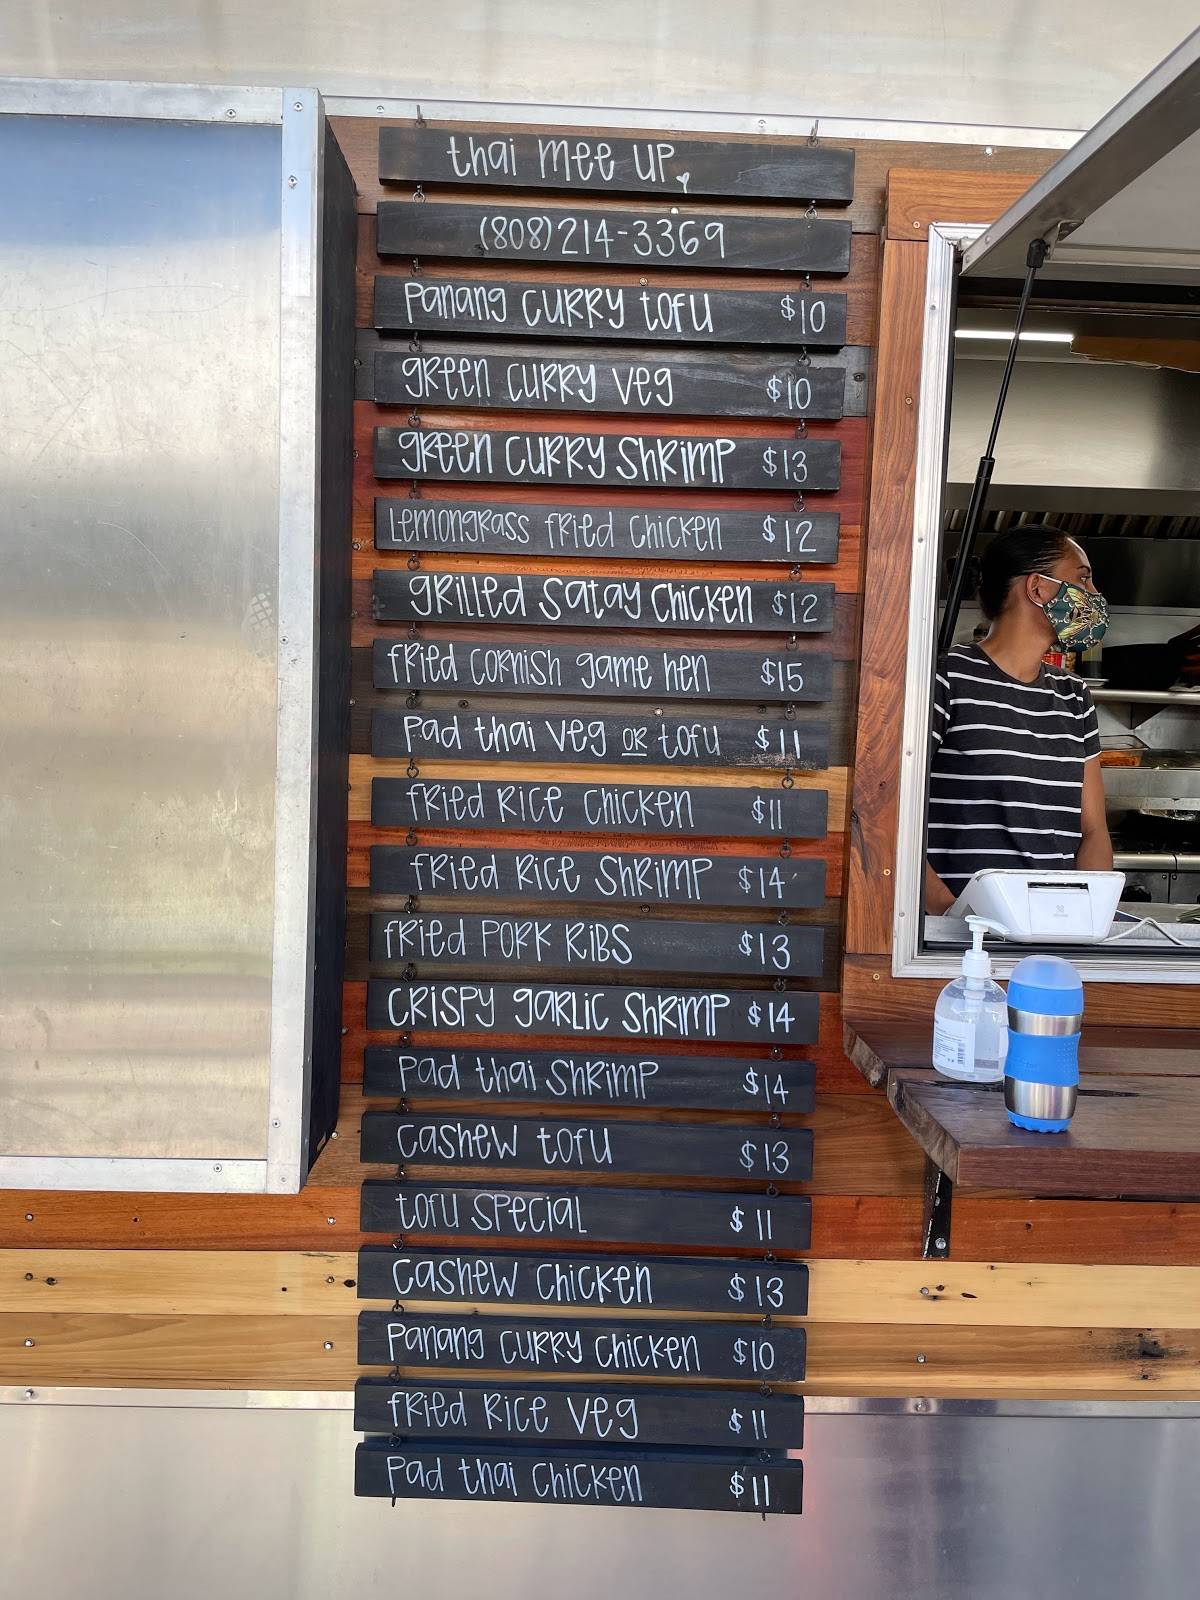 thai mee up
(808)214-3369
Panang Curry tofu $10
green curry veg $10
green curry Shrimp $13
Lemongrass fried chicken $12
grilled Satay chicken $12
fried cornish game hen $15
Pad thai veg or tofu $11
fried rice chicken $11
fried rice Shrimp $14
fried Pork Ribs $13
crispy garlic shrimp $14
Pad thai Shrimp $14
cashew tofu $13
tofu special $11
cashew chicken $13
Panang curry chicken $10
fried rice veg $11
Pad thai chicken $11